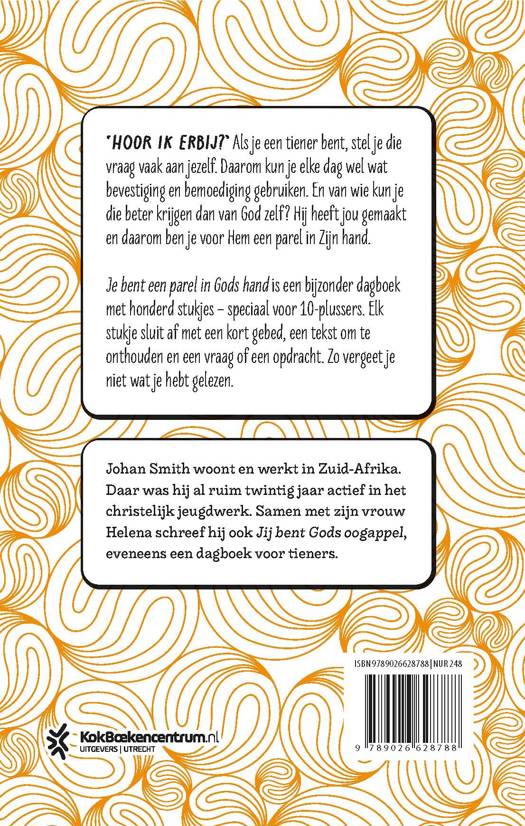 'HOOR IK ERBIJ?' Als je een tiener bent, stel je die
vraag vaak aan jezelf. Daarom kun je elke dag wel wat
bevestiging en bemoediging gebruiken. En van wie kun je
die beter krijgen dan van God zelf? Hij heeft jou gemaakt
en daarom ben je voor Hem een parel in Zijn hand.
Je bent een parel in Gods hand is een bijzonder dagboek
met honderd stukjes – speciaal voor 10-plussers. Elk
stukje sluit af met een kort gebed, een tekst om te
onthouden en een vraag of een opdracht. Zo vergeet je
niet wat je hebt gelezen.
Johan Smith woont en werkt in Zuid-Afrika.
Daar was hij al ruim twintig jaar actief in het
christelijk jeugdwerk. Samen met zijn vrouw
Helena schreef hij ook Jij bent Gods oogappel,
eveneens een dagboek voor tieners.
ISBN 9789026628788 | NUR 248
9 789026 628788
KokBoekencentrum.nl
UITGEVERS | UTRECHT